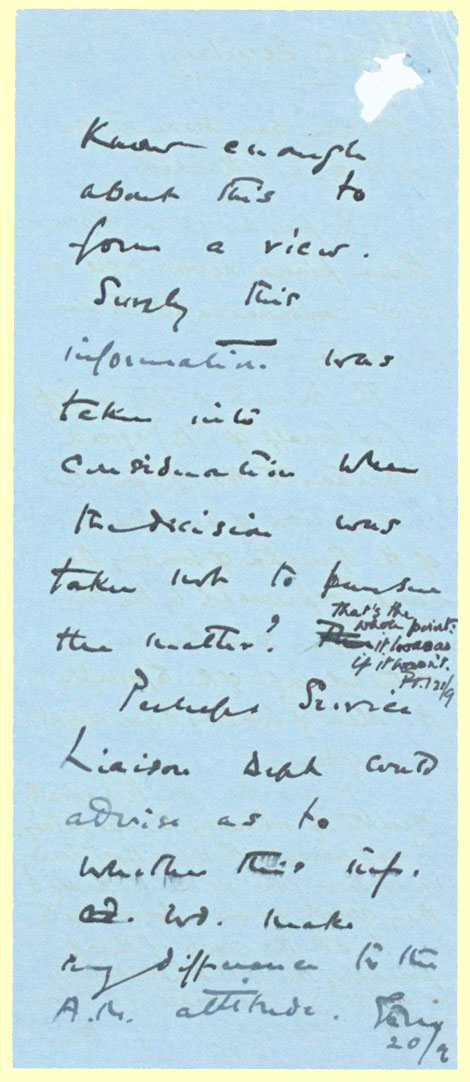 Know enough
about this to
form a view.
Surely this
information was
taken into
consideration when
the decision was
taken not to pursue
the matter?
That's the
whole point:
it looks as
if it wasn't.
20/9
Perhaps Service
Liaison Dept could
advise as to
whether this inf.
wd. make
any difference to the
A.M. attitude.
20/9